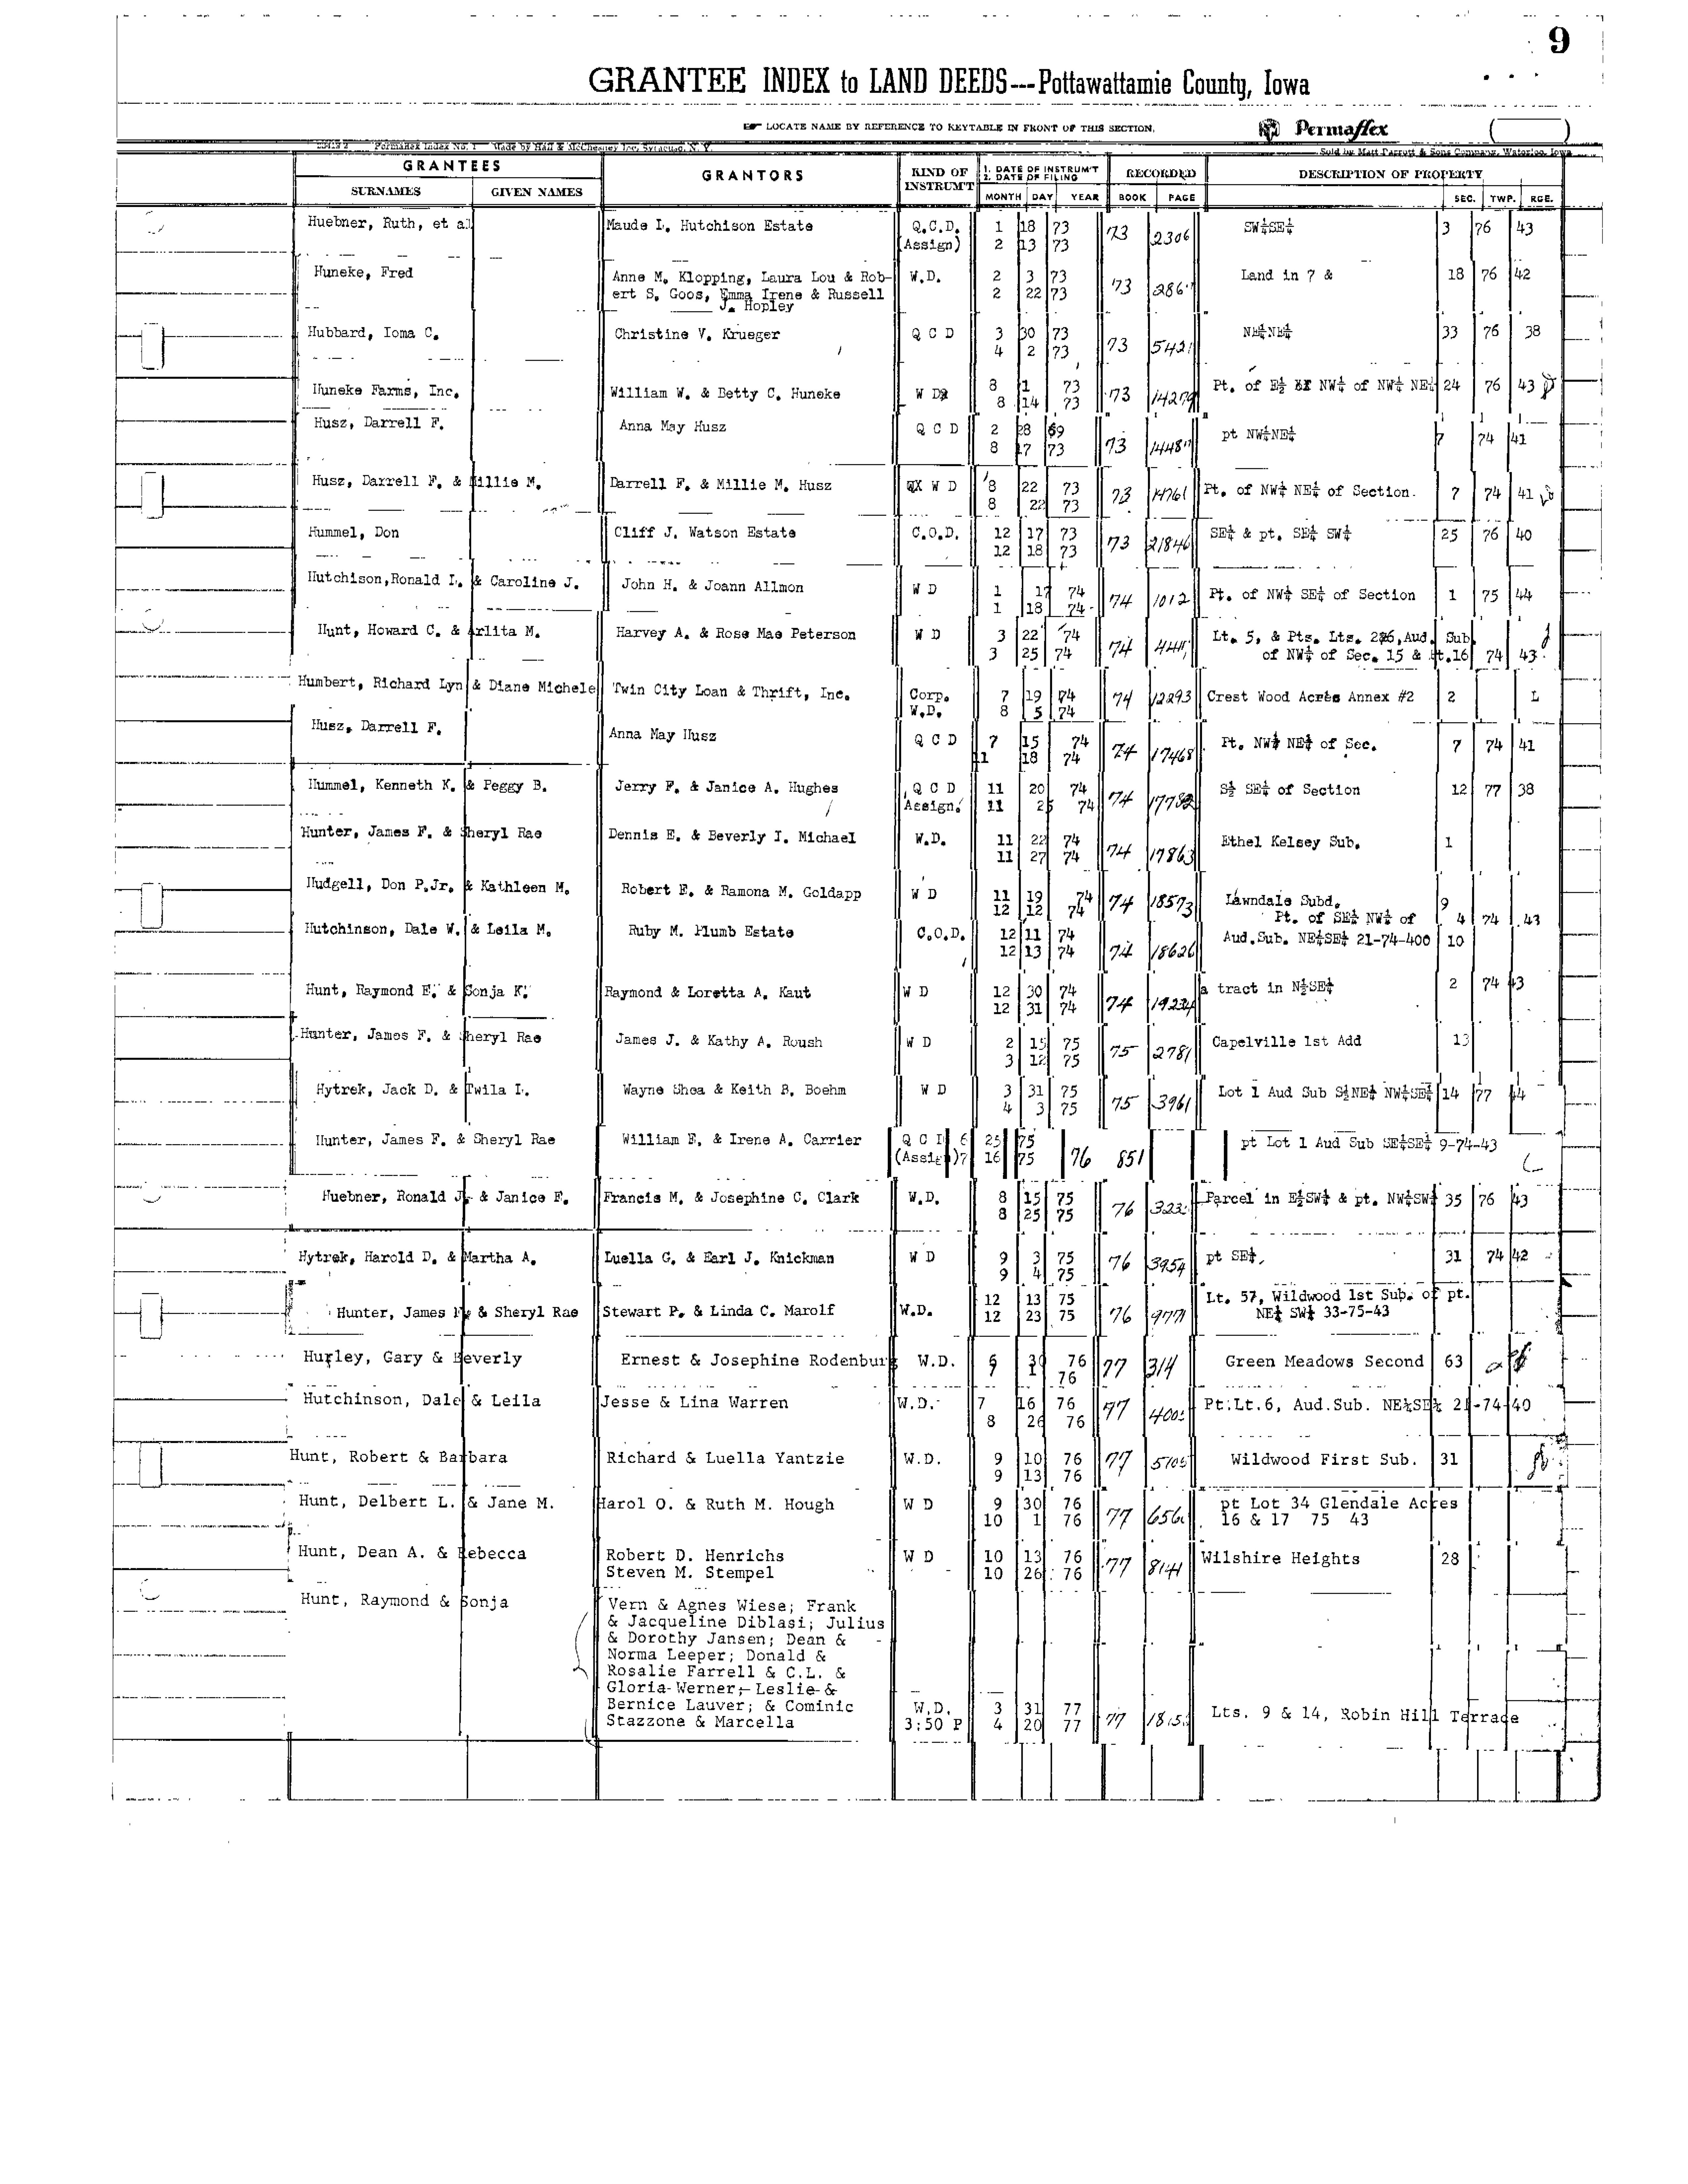 9
GRANTEE INDEX to LAND DEEDS---Pottawattamie County, Iowa
LOCATE NAME BY REFERENCE TO KEYTABLE IN FRONT OF THIS SECTION.
Permaflex
Sold by Matt Parrott & Sons Company, Waterloo, Iowa
GRANTEES GRANTORS KIND OF INSTRUM'T 1. DATE OF INSTRUM'T 2. DATE OF FILING RECORDED DESCRIPTION OF PROPERTY
SURNAMES GIVEN NAMES MONTH DAY YEAR BOOK PAGE SEC. TWP. RGE.
Huebner, Ruth, et al Maude I. Hutchison Estate Q.C.D. 1 18 73 73 2306 SW¼SE¼ 3 76 43
(Assign) 2 13 73
Huneke, Fred Anne M. Klopping, Laura Lou & Rob- W.D. 2 3 73 73 Land in 7 & 18 76 42
ert S. Goos, Emma Irene & Russell 2 22 73
J. Hopley
Hubbard, Ioma C. Christine V. Krueger Q C D 3 30 73 73 5421 NE¼NE¼ 33 76 38
4 2 73
Huneke Farms, Inc. William W. & Betty C. Huneke W D 8 1 73 73 14279 Pt. of E½ of NW¼ of NW¼ NE¼ 24 76 43
8 14 73
Husz, Darrell F. Anna May Husz Q C D 2 28 69 73 pt NW¼NE¼ 7 74 41
8 17 73
Husz, Darrell F. & Millie M. Darrell F. & Millie M. Husz W D 8 22 73 73 14761 Pt. of NW¼ NE¼ of Section. 7 74 41
8 22 73
Hummel, Don Cliff J. Watson Estate C.O.D. 12 17 73 73 21846 SE¼ & pt. SE¼ SW¼ 25 76 40
12 18 73
Hutchison,Ronald L. & Caroline J. John H. & Joann Allmon W D 1 17 74 74 1012 Pt. of NW¼ SE¼ of Section 1 75 44
1 18 74
Hunt, Howard C. & Arlita M. Harvey A. & Rose Mae Peterson W D 3 22 74 74 Lt. 5, & Pts. Lts. 2&6,Aud. Sub.
3 25 74 of NW¼ of Sec. 15 & Lt.16 74 43
Humbert, Richard Lyn & Diane Michele Twin City Loan & Thrift, Inc. Corp. 7 19 74 74 12293 Crest Wood Acres Annex #2 2 L
W.D. 8 5 74
Husz, Darrell F. Anna May Husz Q C D 7 15 74 74 17468 Pt. NW¼ NE¼ of Sec. 7 74 41
11 18 74
Hummel, Kenneth K. & Peggy B. Jerry F. & Janice A. Hughes Q C D 11 20 74 74 17782 S½ SE¼ of Section 12 77 38
Assign. 11 25 74
Hunter, James F. & Sheryl Rae Dennis E. & Beverly I. Michael W.D. 11 22 74 74 17863 Ethel Kelsey Sub. 1
11 27 74
Hudgell, Don P.Jr. & Kathleen M. Robert E. & Ramona M. Goldapp W D 11 19 74 74 18573 Lawndale Subd. 9
12 12 74 Pt. of SE¼ NW¼ of 4 74 43
Hutchinson, Dale W. & Leila M. Ruby M. Plumb Estate C.O.D. 12 11 74 74 18626 Aud.Sub. NE¼SE¼ 21-74-400 10
12 13 74
Hunt, Raymond E. & Sonja K. Raymond & Loretta A. Kaut W D 12 30 74 74 19234 a tract in N½SE¼ 2 74 43
12 31 74
Hunter, James F. & Sheryl Rae James J. & Kathy A. Roush W D 2 15 75 75 2781 Capelville 1st Add 13
3 12 75
Hytrek, Jack D. & Twila L. Wayne Shea & Keith B. Boehm W D 3 31 75 75 3961 Lot 1 Aud Sub S½NE¼ NW¼SE¼ 14 77 44
4 3 75
Hunter, James F. & Sheryl Rae William E. & Irene A. Carrier Q C D 6 25 75 76 851 pt Lot 1 Aud Sub SE¼SE¼ 9-74-43
(Assign)7 16 75
Huebner, Ronald J. & Janice F. Francis M. & Josephine C. Clark W.D. 8 15 75 76 Parcel in E½SW¼ & pt. NW¼SW¼ 35 76 43
8 25 75
Hytrek, Harold D. & Martha A. Luella G. & Earl J. Knickman W D 9 3 75 76 3954 pt SE¼, 31 74 42
9 4 75
Hunter, James F. & Sheryl Rae Stewart P. & Linda C. Marolf W.D. 12 13 75 76 Lt. 57, Wildwood 1st Sub. of pt.
12 23 75 NE¼ SW¼ 33-75-43
Hurley, Gary & Beverly Ernest & Josephine Rodenburg W.D. 6 30 76 77 314 Green Meadows Second 63
7 1 76
Hutchinson, Dale & Leila Jesse & Lina Warren W.D. 7 16 76 77 Pt.Lt.6, Aud.Sub. NE¼SE¼ 21-74-40
8 26 76
Hunt, Robert & Barbara Richard & Luella Yantzie W.D. 9 10 76 77 5105 Wildwood First Sub. 31
9 13 76
Hunt, Delbert L. & Jane M. Harol O. & Ruth M. Hough W D 9 30 76 77 pt Lot 34 Glendale Acres
10 1 76 16 & 17 75 43
Hunt, Dean A. & Rebecca Robert D. Henrichs W D 10 13 76 77 8141 Wilshire Heights 28
Steven M. Stempel 10 26 76
Hunt, Raymond & Sonja Vern & Agnes Wiese; Frank
& Jacqueline Diblasi; Julius
& Dorothy Jansen; Dean &
Norma Leeper; Donald &
Rosalie Farrell & C.L. &
Gloria Werner; Leslie &
Bernice Lauver; & Cominic W.D. 3 31 77 77 Lts. 9 & 14, Robin Hill Terrace
Stazzone & Marcella 3:50 P 4 20 77